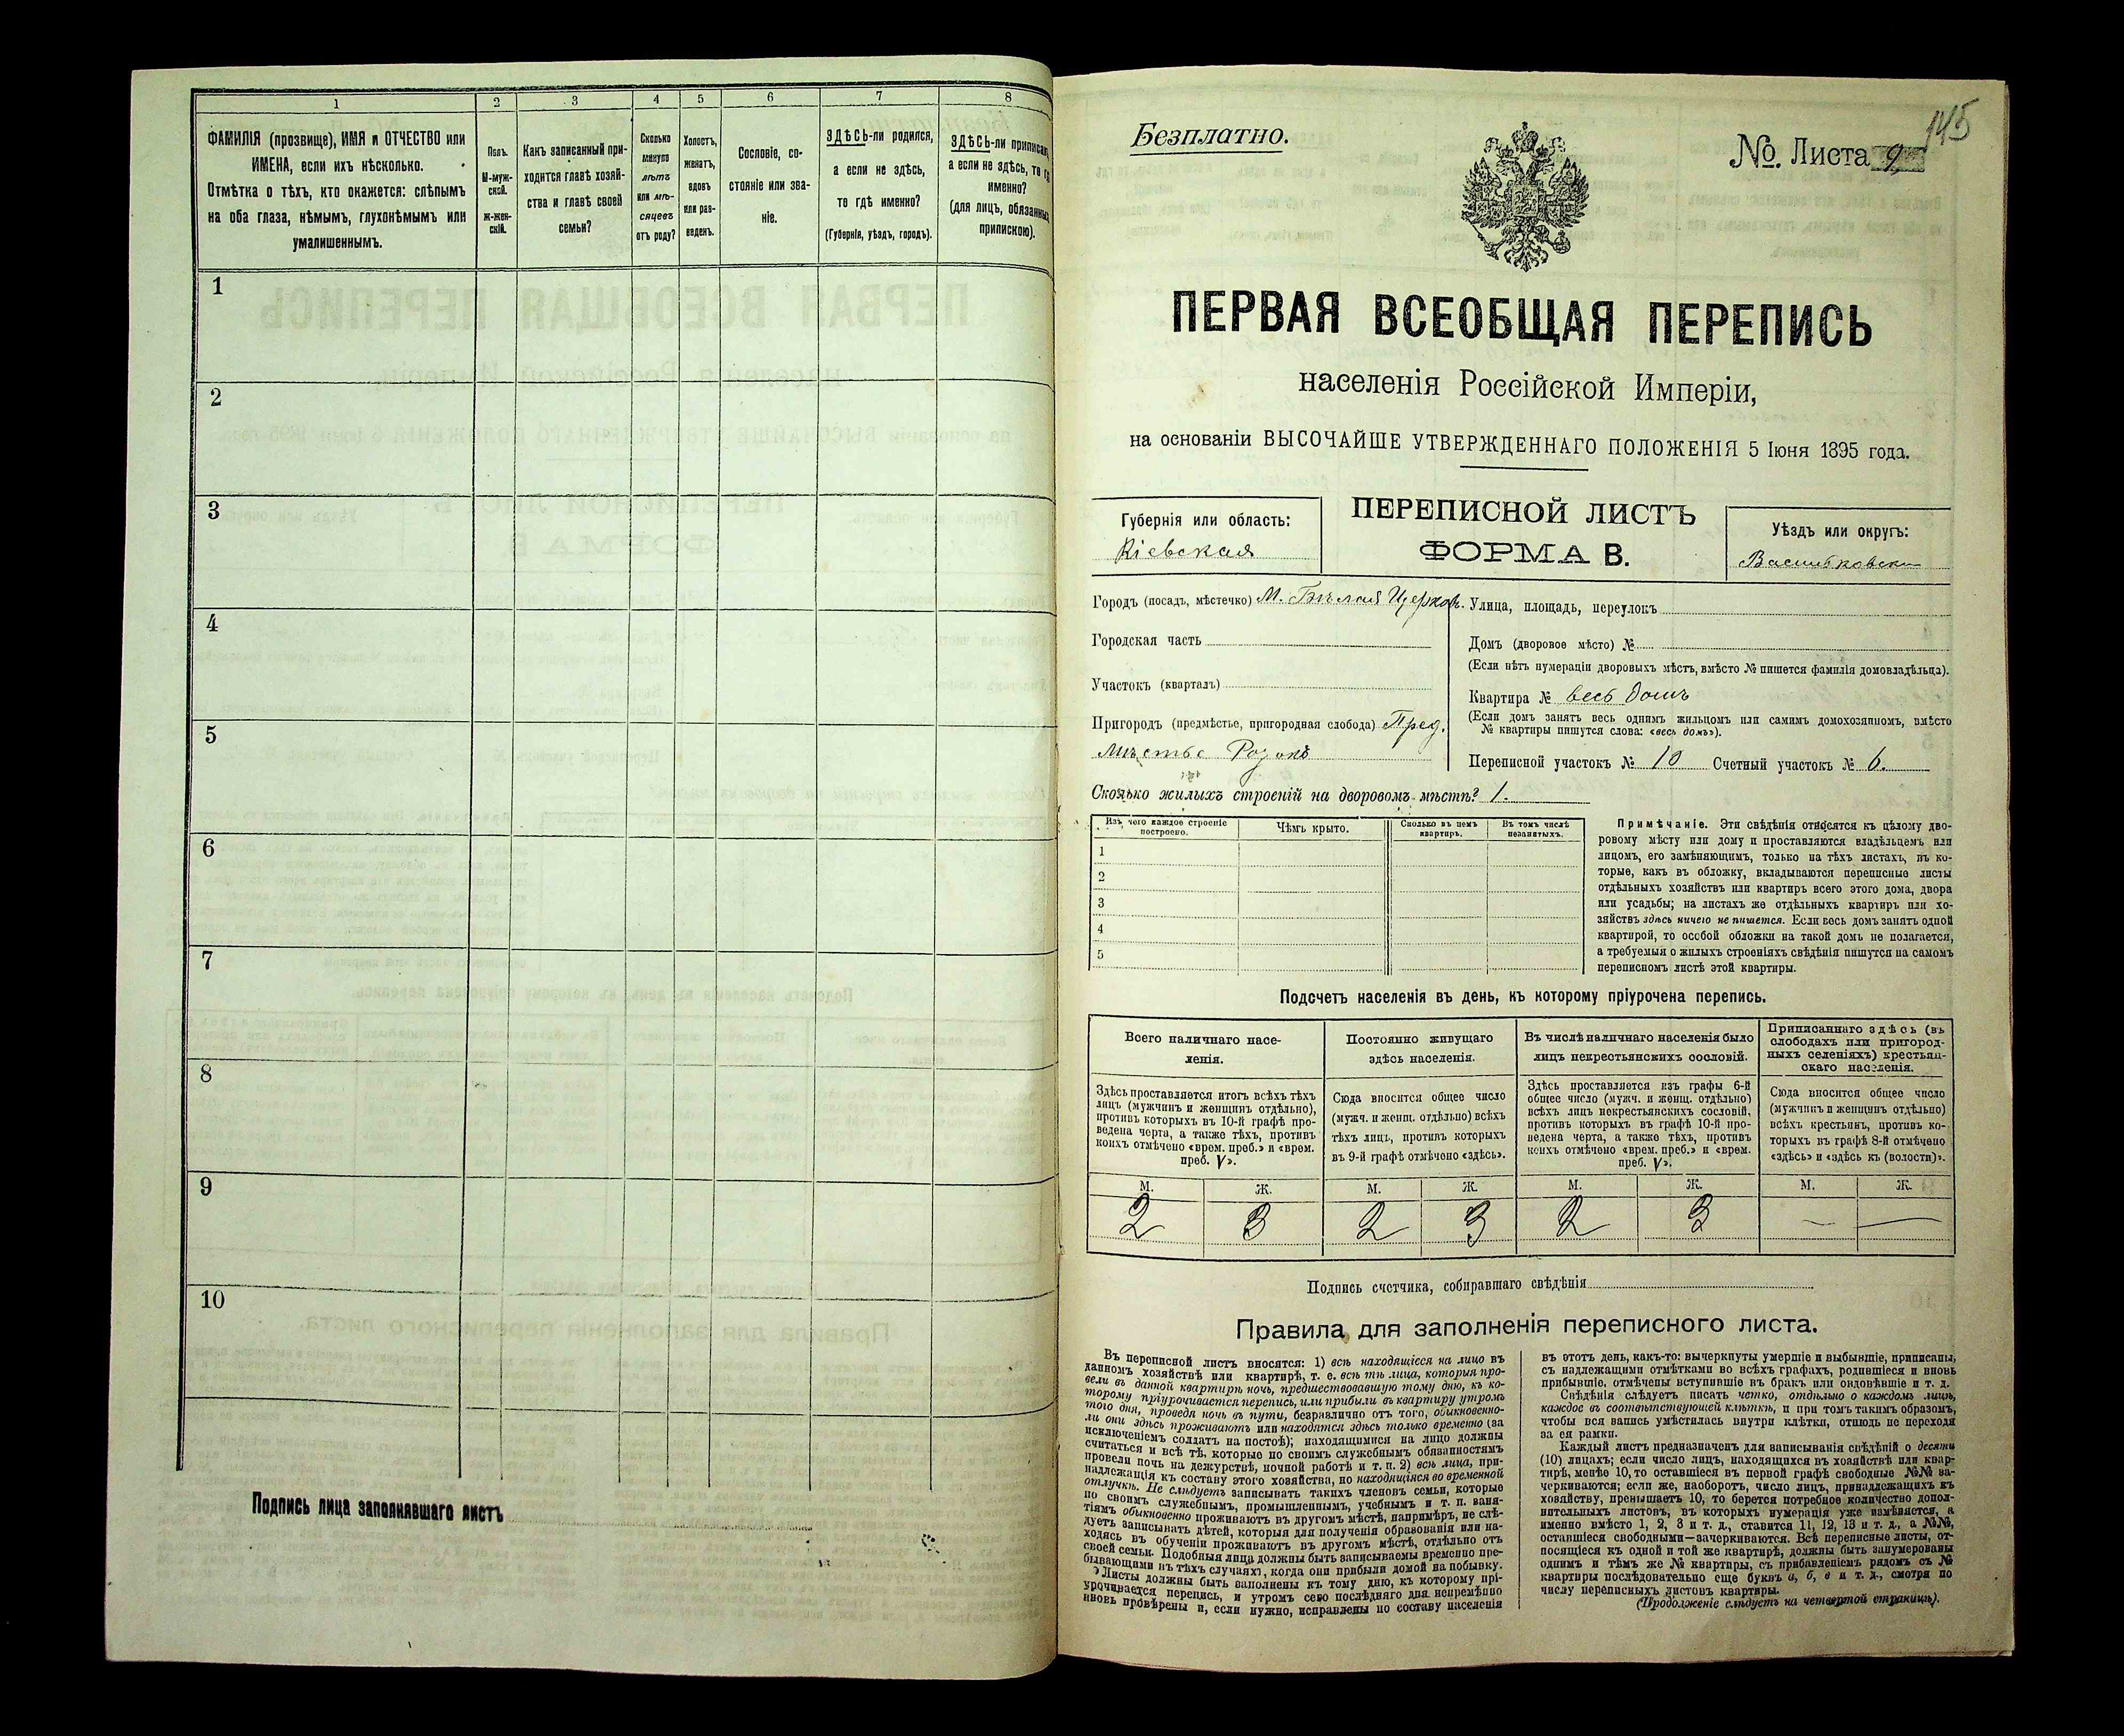 1 2 3 4 5 6 7 8
ФАМИЛІЯ (прозвище), ИМЯ и ОТЧЕСТВО или
ИМЕНА, если ихъ нѣсколько.
Отмѣтка о тѣхъ, кто окажется: слѣпымъ
на оба глаза, нѣмымъ, глухонѣмымъ или
умалишеннымъ.
Полъ.
М-муж-
ской.
Ж-жен-
скій.
Какъ записанный при-
ходится главѣ хозяй-
ства и главѣ своей
семьи?
Сколько
минуло
лѣтъ
или мѣ-
сяцевъ
отъ роду?
Холостъ,
женатъ,
вдовъ
или раз-
веденъ.
Сословіе, со-
стояніе или зва-
ніе.
ЗДѢСЬ-ли родился,
а если не здѣсь,
то гдѣ именно?
(Губернія, уѣздъ, городъ).
ЗДѢСЬ-ли приписан
а если не здѣсь, то г
именно?
(для лицъ, обязанных
припискою).
1
2
3
4
5
6
7
8
9
10
Подпись лица заполнявшаго листъ
145
Безплатно.
№ Листа 9
ПЕРВАЯ ВСЕОБЩАЯ ПЕРЕПИСЬ
населенія Россійской Имперіи,
на основаніи ВЫСОЧАЙШЕ УТВЕРЖДЕННАГО ПОЛОЖЕНІЯ 5 Іюня 1895 года.
Губернія или область:
Кіевская
ПЕРЕПИСНОЙ ЛИСТЪ
ФОРМА В.
Уѣздъ или округъ:
Васильковск
Городъ (посадъ, мѣстечко) М. Бѣлая Церковь.
Городская часть
Участокъ (кварталъ)
Пригородъ (предмѣстье, пригородная слобода) Пред.
мѣстье
Улица, площадь, переулокъ
Домъ (дворовое мѣсто) №
(Если нѣтъ нумераціи дворовыхъ мѣстъ, вмѣсто № пишется фамилія домовладѣльца).
Квартира № весь домъ
(Если домъ занятъ весь однимъ жильцомъ или самимъ домохозяиномъ, вмѣсто
№ квартиры пишутся слова: «весь домъ»).
Переписной участокъ № 10 Счетный участокъ № 6.
Сколько жилыхъ строеній на дворовомъ мѣстѣ? 1.
Изъ чего каждое строеніе
построено.
Чѣмъ крыто.
Сколько въ немъ
квартиръ.
Въ томъ числѣ
незанятыхъ.
1
2
3
4
5
Примѣчаніе. Эти свѣдѣнія относятся къ цѣлому дво-
ровому мѣсту или дому и проставляются владѣльцемъ или
лицомъ, его замѣняющимъ, только на тѣхъ листахъ, въ ко-
торые, какъ въ обложку, вкладываются переписные листы
отдѣльныхъ хозяйствъ или квартиръ всего этого дома, двора
или усадьбы; на листахъ же отдѣльныхъ квартиръ или хо-
зяйствъ здѣсь ничего не пишется. Если весь домъ занятъ одной
квартирой, то особой обложки на такой домъ не полагается,
а требуемыя о жилыхъ строеніяхъ свѣдѣнія пишутся на самомъ
переписномъ листѣ этой квартиры.
Подсчетъ населенія въ день, къ которому пріурочена перепись.
Всего наличнаго насе-
ленія.
Здѣсь проставляется итогъ всѣхъ тѣхъ
лицъ (мужчинъ и женщинъ отдѣльно),
противъ которыхъ въ 10-й графѣ про-
ведена черта, а также тѣхъ, противъ
коихъ отмѣчено «врем. преб.» и «врем.
преб. V».
Постоянно живущаго
здѣсь населенія.
Сюда вносится общее число
(мужч. и женщ. отдѣльно) всѣхъ
тѣхъ лицъ, противъ которыхъ
въ 9-й графѣ отмѣчено «здѣсь».
Въ числѣ наличнаго населенія было
лицъ некрестьянскихъ сословій.
Здѣсь проставляется изъ графы 6-й
общее число (мужч. и женщ. отдѣльно)
всѣхъ лицъ некрестьянскихъ сословій,
противъ которыхъ въ графѣ 10-й про-
ведена черта, а также тѣхъ, противъ
коихъ отмѣчено «врем. преб.» и «врем.
преб. V».
Приписаннаго здѣсь (въ
слободахъ или пригород-
ныхъ селеніяхъ) крестьян-
скаго населенія.
Сюда вносится общее число
(мужчинъ и женщинъ отдѣльно)
всѣхъ крестьянъ, противъ ко-
торыхъ въ графѣ 8-й отмѣчено
«здѣсь» и «здѣсь къ (волости)».
М. Ж. М. Ж. М. Ж. М. Ж.
2 3 2 3 2 3 — —
Подпись счетчика, собиравшаго свѣдѣнія
Правила для заполненія переписного листа.
Въ переписной листъ вносятся: 1) всѣ находящіеся на лицо въ
данномъ хозяйствѣ или квартирѣ, т. е. всѣ тѣ лица, которыя про-
вели въ данной квартирѣ ночь, предшествовавшую тому дню, къ ко-
торому пріурочивается перепись, или прибыли въ квартиру утромъ
того дня, проведя ночь въ пути, безразлично отъ того, обыкновенно-
ли они здѣсь проживаютъ или находятся здѣсь только временно (за
исключеніемъ солдатъ на постоѣ); находящимися на лицо должны
считаться и всѣ тѣ, которые по своимъ служебнымъ обязанностямъ
провели ночь на дежурствѣ, ночной работѣ и т. п. 2) всѣ лица, при-
надлежащія къ составу этого хозяйства, но находящіяся во временной
отлучкѣ. Не слѣдуетъ записывать такихъ членовъ семьи, которые
по своимъ служебнымъ, промышленнымъ, учебнымъ и т. п. заня-
тіямъ обыкновенно проживаютъ въ другомъ мѣстѣ, напримѣръ, не слѣ-
дуетъ записывать дѣтей, которыя для полученія образованія или на-
ходясь въ обученіи проживаютъ въ другомъ мѣстѣ, отдѣльно отъ
своей семьи. Подобныя лица должны быть записываемы временно пре-
бывающими въ тѣхъ случаяхъ, когда они прибыли домой на побывку.
Листы должны быть заполнены къ тому дню, къ которому прі-
урочивается перепись, и утромъ сего послѣдняго дня непремѣнно
вновь провѣрены и, если нужно, исправлены по составу населенія
въ этотъ день, какъ-то: вычеркнуты умершіе и выбывшіе, приписаны,
съ надлежащими отмѣтками во всѣхъ графахъ, родившіеся и вновь
прибывшіе, отмѣчены вступившіе въ бракъ или овдовѣвшіе и т. д.
Свѣдѣнія слѣдуетъ писать четко, отдѣльно о каждомъ лицѣ,
каждое въ соотвѣтствующей клѣткѣ, и при томъ такимъ образомъ,
чтобы вся запись умѣстилась внутри клѣтки, отнюдь не переходя
за ея рамки.
Каждый листъ предназначенъ для записыванія свѣдѣній о десяти
(10) лицахъ; если число лицъ, находящихся въ хозяйствѣ или квар-
тирѣ, менѣе 10, то оставшіеся въ первой графѣ свободные №№ за-
черкиваются; если же, наоборотъ, число лицъ, принадлежащихъ къ
хозяйству, превышаетъ 10, то берется потребное количество допол-
нительныхъ листовъ, въ которыхъ нумерація уже измѣняется, а
именно вмѣсто 1, 2, 3 и т. д., ставится 11, 12, 13 и т. д., а №№,
оставшіеся свободными—зачеркиваются. Всѣ переписные листы, от-
носящіеся къ одной и той же квартирѣ, должны быть занумерованы
однимъ и тѣмъ же № квартиры, съ прибавленіемъ рядомъ съ №
квартиры послѣдовательно еще буквъ а, б, в и т. д., смотря по
числу переписныхъ листовъ квартиры.
(Продолженіе слѣдуетъ на четвертой страницѣ).